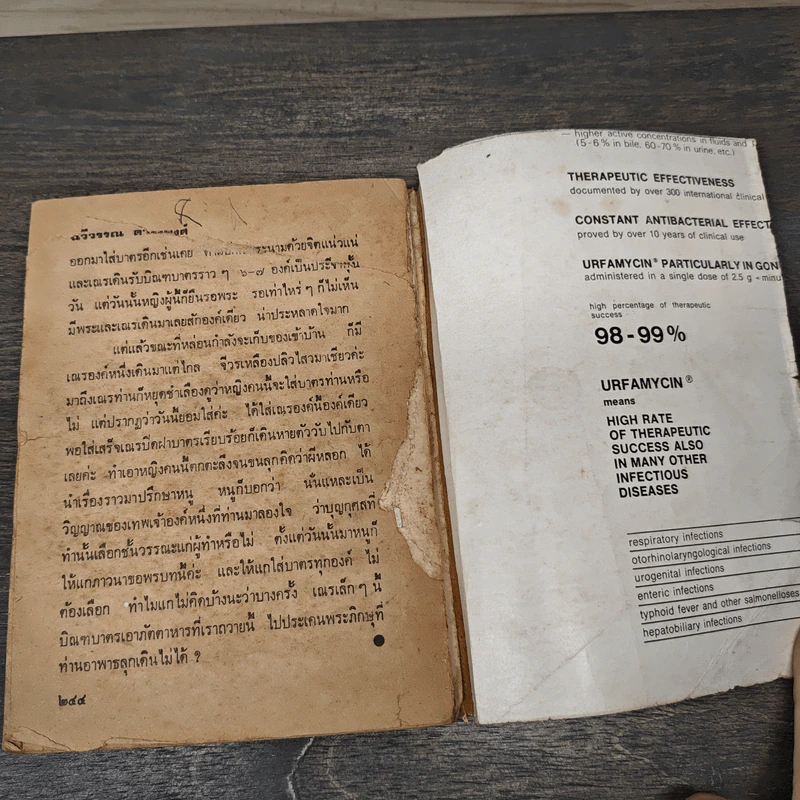 ฉวีวรรณ
ออกมาใส่บาตรอีกเช่นเคย ระนามด้วยจิตแน่วแน่
และเณรเดินรับบิณฑบาตรราว ๆ ๖-๗ องค์เป็นประจำทุ้น
วัน แต่วันนั้นหญิงผู้นี้ก็ยืนรอพระ รอเท่าไหร่ ๆ ก็ไม่เห็น
มีพระและเณรเดินมาเลยสักองค์เดียว น่าประหลาดใจมาก
แต่แล้วขณะที่หล่อนกำลังจะเก็บของเข้าบ้าน ก็มี
เณรองค์หนึ่งเดินมาแต่ไกล จีวรเหลืองปลิวไสวมาเชียวค่ะ
มาถึงเณรท่านก็หยุดชำเลืองดูว่าหญิงคนนี้จะใส่บาตรท่านหรือ
ไม่ แต่ปรากฏว่าวันนี้ยอมใส่ค่ะ ได้ใส่เณรองค์นี้องค์เดียว
พอใส่เสร็จเณรปิดฝาบาตรเรียบร้อยก็เดินหายตัววับไปกับตา
เลยค่ะ ทำเอาหญิงคนนี้ตกตะลึงจนขนลุกคิดว่าผีหลอก ได้
นำเรื่องราวมาปรึกษาหนู หนูก็บอกว่า นั่นแหละเป็น
วิญญาณของเทพเจ้าองค์หนึ่งที่ท่านมาลองใจ ว่าบุญกุศลที่
ทำนั้นเลือกชั้นวรรณะแก่ผู้ทำหรือไม่ ตั้งแต่วันนั้นมาหนูก็
ให้แกภาวนาขอพรบทนี้ค่ะ และให้แกใส่บาตรทุกองค์ ไม่
ต้องเลือก ทำไมแกไม่คิดบ้างนะว่าบางครั้ง เณรเล็ก ๆ นี้
บิณฑบาตรเอาภัตตาหารที่เราถวายนี้ ไปประเคนพระภิกษุที่
ท่านอาพาธลุกเดินไม่ได้ ?
๒๔๔
— higher active concentrations in fluids and
(5-6% in bile, 60-70% in urine, etc.)
THERAPEUTIC EFFECTIVENESS
documented by over 300 international clinical
CONSTANT ANTIBACTERIAL EFFECT
proved by over 10 years of clinical use
URFAMYCIN® PARTICULARLY IN GON
administered in a single dose of 2.5 g
high percentage of therapeutic
success
98-99%
URFAMYCIN®
means
HIGH RATE
OF THERAPEUTIC
SUCCESS ALSO
IN MANY OTHER
INFECTIOUS
DISEASES
respiratory infections
otorhinolaryngological infections
urogenital infections
enteric infections
typhoid fever and other salmonelloses
hepatobiliary infections